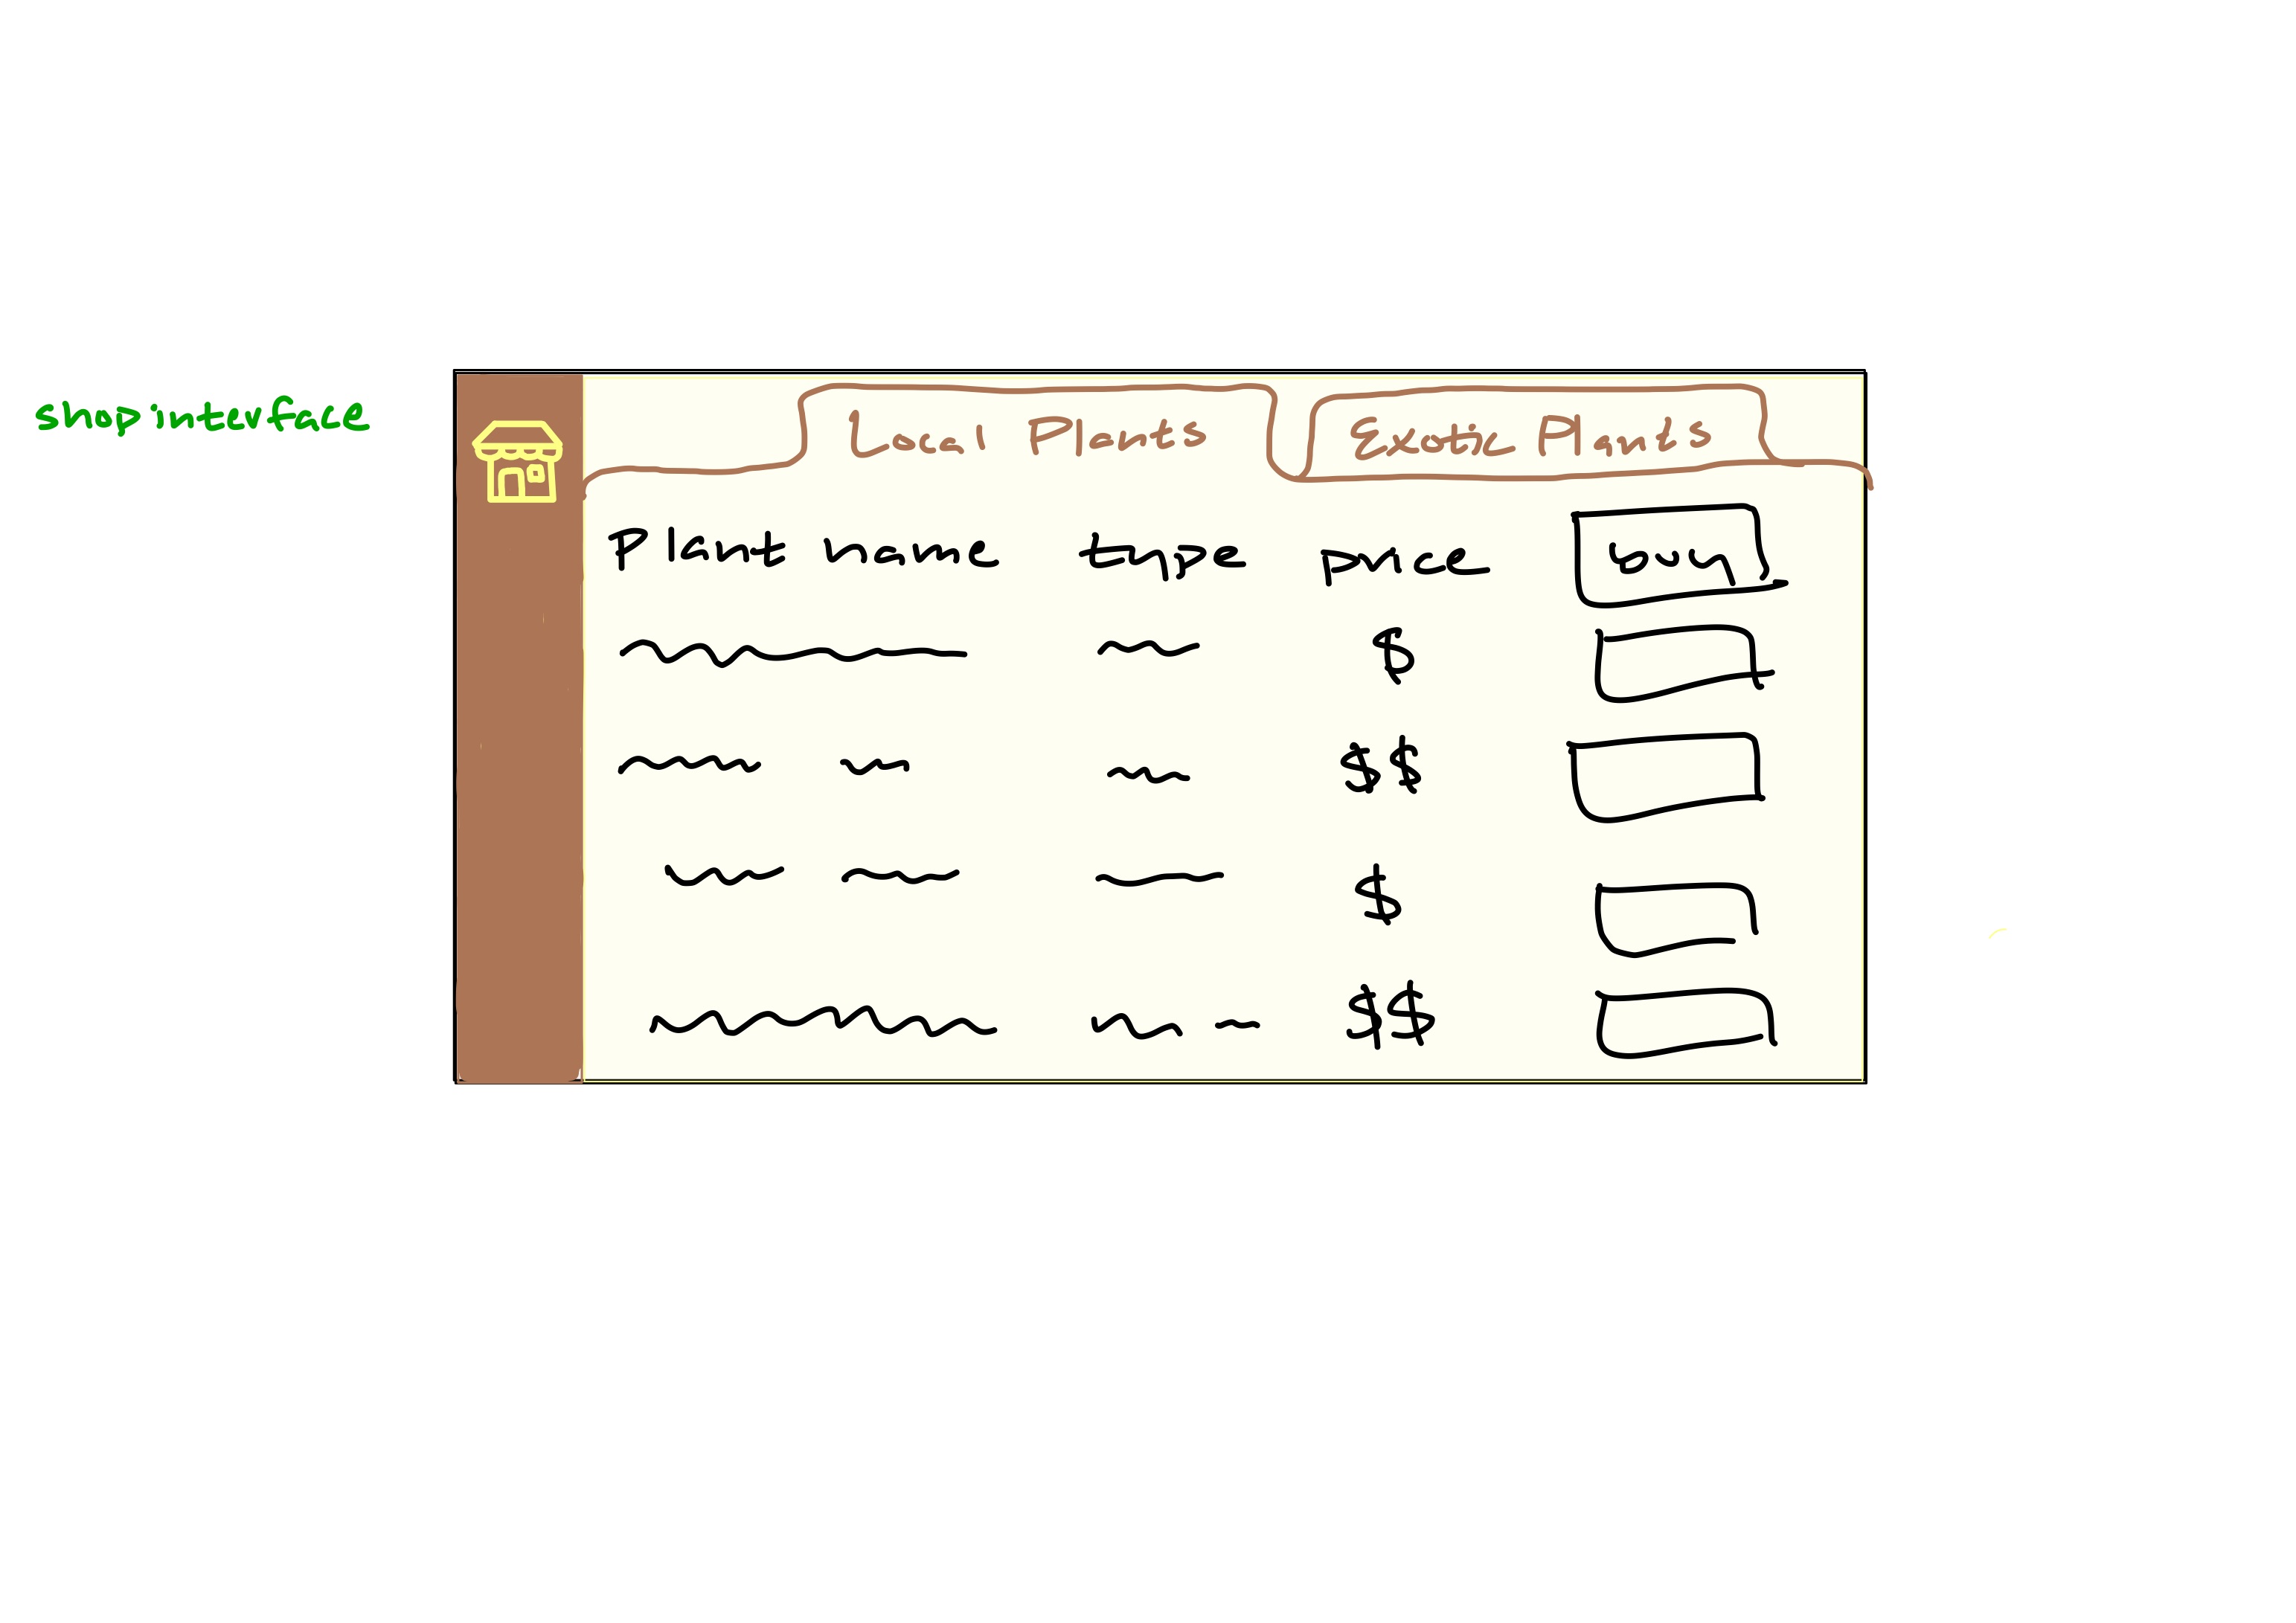 shop interface
Local Plants
Exotic Plants
Plant name type price buy
$
$$
$
$$